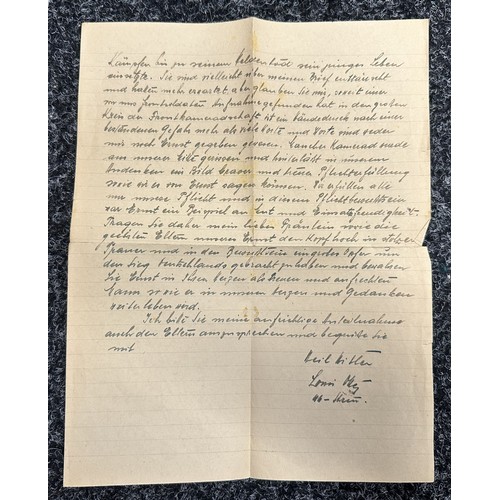 Kämpfen bis zu seinem Heldentod sein junges Leben
einsetzte. Sie sind vielleicht über meinen Brief enttäuscht
und haben mehr erwartet, aber glauben Sie mir, wenn einer
von uns Frontsoldaten Aufnahme gefunden hat in den großen
Kreis der Frontkameradschaft, ist ein Händedruck nach einer
überstandenen Gefahr mehr als viele Worte und Worte sind weder
mir noch Ernst gegeben gewesen. Mancher Kamerad wurde
aus unserer Mitte gerissen und hinterläßt in unserem
Andenken ein Bild braver und treuer Pflichterfüllung
sowie wir es von Ernst sagen können. Wir erfüllen alle
nur unsere Pflicht und in diesem Pflichtbewußtsein
war Ernst ein Beispiel an Mut und Einsatzfreudigkeit.
Tragen Sie daher mein liebes Fräulein sowie die
geehrten Eltern unseres Ernst den Kopf hoch in stolzer
Trauer und in dem Bewußtsein ein großes Opfer um
den Sieg Deutschlands gebracht zu haben und bewahren
Sie Ernst in Ihren Herzen als treuen und aufrechten
Mann so wie er in unseren Herzen und Gedanken
weiterleben wird.
Ich bitte Sie meine aufrichtige Anteilnahme
auch den Eltern auszusprechen und begrüße Sie
mit
Heil Hitler